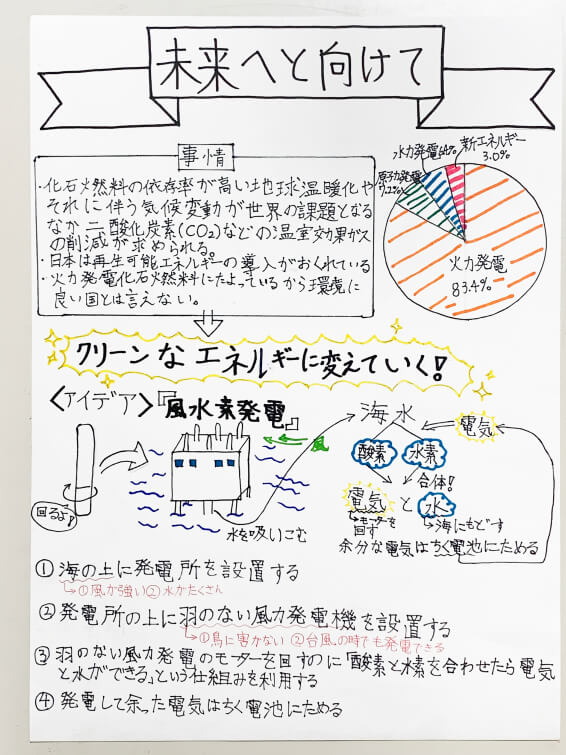 未来へと向けて
事情
・化石燃料の依存率が高い地球温暖化や
それに伴う気候変動が世界の課題となる
なか二酸化炭素(CO₂)などの温室効果ガス
の削減が求められる。
・日本は再生可能エネルギーの導入がおくれている
・火力発電化石燃料にたよっているから環境に
良い国とは言えない。
水力発電
新エネルギー
3.0%
原子力発電
火力発電
83.4%
クリーンなエネルギーに変えていく!
〈アイデア〉『風水素発電』
風
回るよ!
水を吸いこむ
海水
電気
酸素
水素
合体!
電気と水
モーターを
回す
海にもどす
余分な電気はちく電池にためる
①海の上に発電所を設置する
①風が強い②水がたくさん
②発電所の上に羽のない風力発電機を設置する
①鳥に害がない ②台風の時でも発電できる
③羽のない風力発電のモーターを回すのに「酸素と水素を合わせたら電気
と水ができる」という仕組みを利用する
④発電して余った電気はちく電池にためる